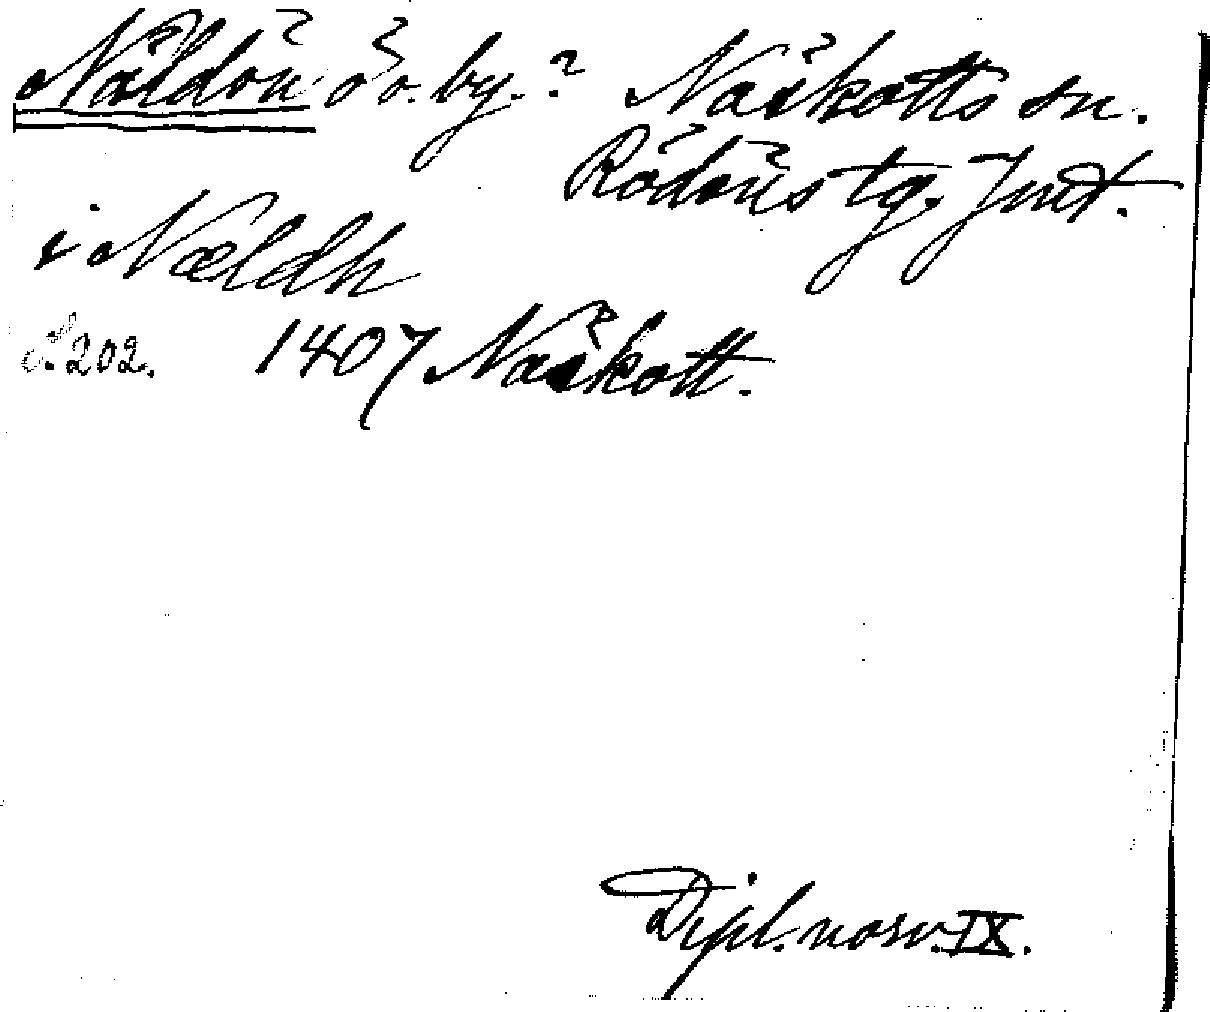 Näldön ö o. by.? Näskotts sn.
Rödöns tg. Jmt.
i Nældh
S. 202. 1407 Näskott.
Dipl. norv. IX.